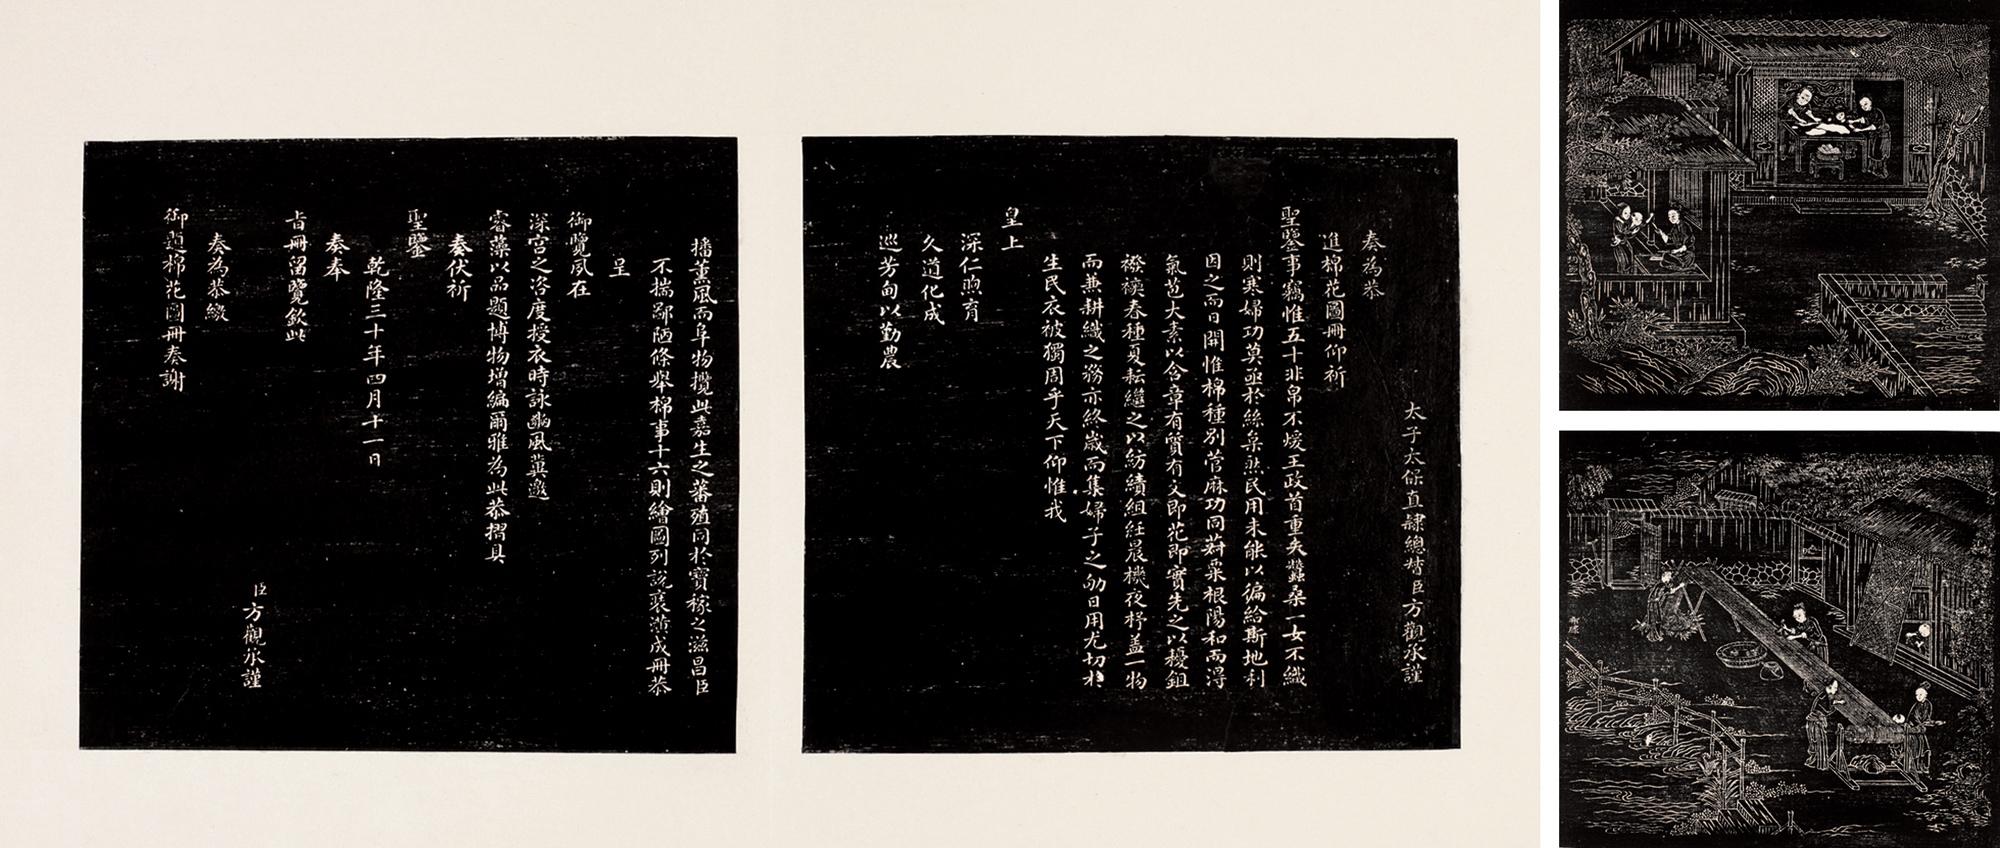 太子太保直隸總督臣方觀承謹
奏為恭
進棉花圖冊仰祈
聖鑒事竊惟五十非帛不煖王政首重夫蠶桑一女不織
則寒婦功莫亟於絲枲然民用未能以徧給斯地利
因之而日開惟棉種別菅麻功同菽粟根陽和而得
氣苞大素以含章有質有文即花即實先之以擾鉏
襏襫春種夏耘繼之以紡績組紝晨機夜杼蓋一物
而兼耕織之務亦終歲而集婦子之劬日用尤切於
生民衣被獨周乎天下仰惟我
皇上
深仁煦育
久道化成
巡芳甸以勤農
播薰風而阜物攬此嘉生之蕃殖同於寶稼之滋昌臣
不揣鄙陋條舉棉事十六則繪圖列說裝潢成冊恭
呈
御覽夙在
深宮之咨度授衣時詠豳風冀邀
睿藻以品題博物增編爾雅為此恭摺具
奏伏祈
聖鑒
乾隆三十年四月十一日
奏奉
旨冊留覽欽此
臣方觀承謹
奏為恭繳
御題棉花圖冊奏謝